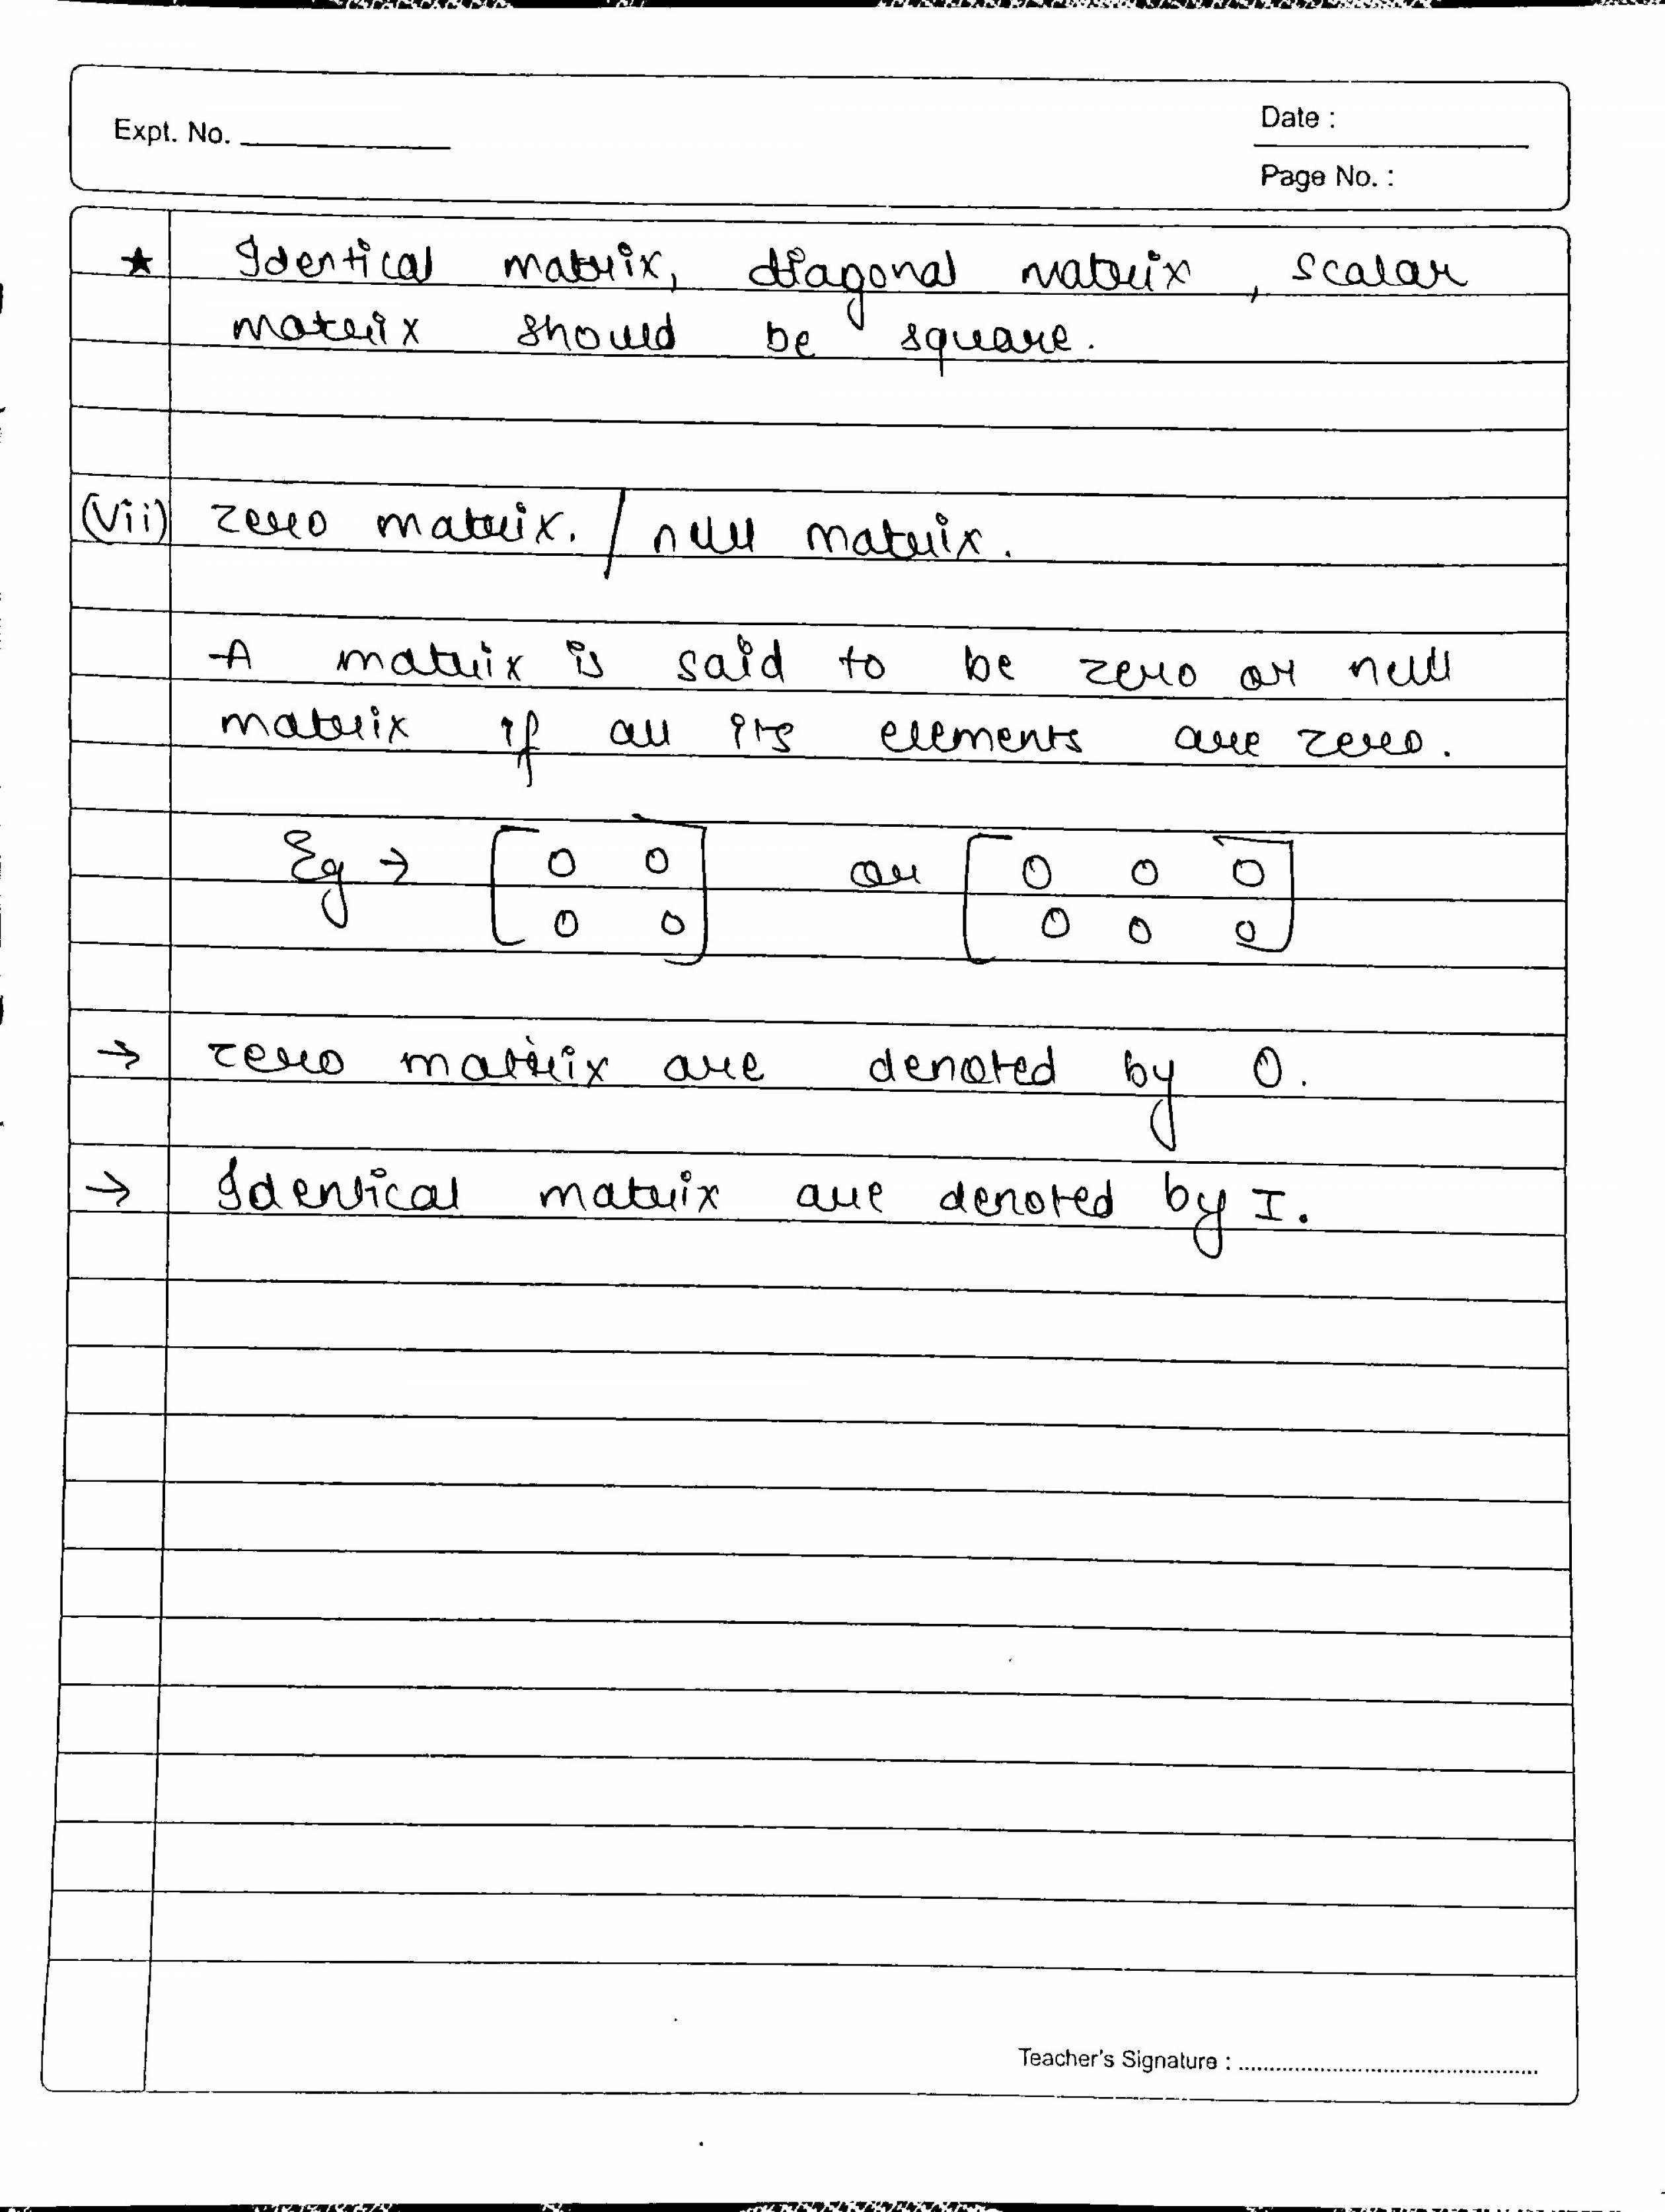 Expt. No.
Date :
Page No. :
★ Identical matrix, diagonal matrix, scalar
matrix should be square.
(vii) zero matrix. / null matrix.
A matrix is said to be zero or null
matrix if all its elements are zero.
Eg → [ 0 0 or [ 0 0 0 ]
0 0 ] 0 0 0
→ zero matrix are denoted by O.
→ Identical matrix are denoted by I.
Teacher's Signature :